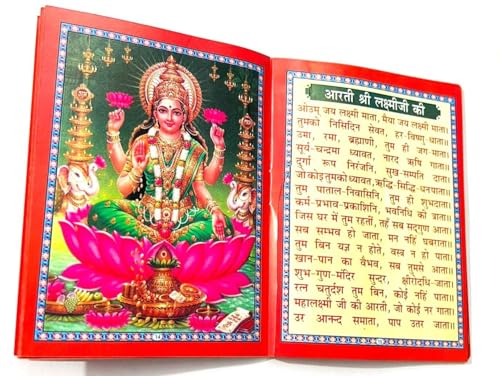 आरती श्री लक्ष्मीजी की
ओउम् जय लक्ष्मी माता, मैया जय लक्ष्मी माता।
तुमको निसिदिन सेवत, हर-विष्णु-धाता॥
उमा, रमा, ब्रह्माणी, तुम ही जग-माता।
सूर्य-चन्द्रमा ध्यावत, नारद ऋषि गाता॥
दुर्गा रूप निरंजनि, सुख-सम्पति दाता।
जो कोइ तुमको ध्यावत, ऋद्धि-सिद्धि-धन पाता॥
तुम पाताल-निवासिनि, तुम ही शुभदाता।
कर्म-प्रभाव-प्रकाशिनि, भवनिधि की त्राता॥
जिस घर में तुम रहती, तहँ सब सद्‌गुण आता।
सब सम्भव हो जाता, मन नहिं घबराता॥
तुम बिन यज्ञ न होते, वस्त्र न हो पाता।
खान-पान का वैभव, सब तुमसे आता॥
शुभ-गुण-मंदिर सुन्दर, क्षीरोदधि-जाता।
रत्न चतुर्दश तुम बिन, कोई नहिं पाता॥
महालक्ष्मी जी की आरती, जो कोई नर गाता।
उर आनन्द समाता, पाप उतर जाता॥